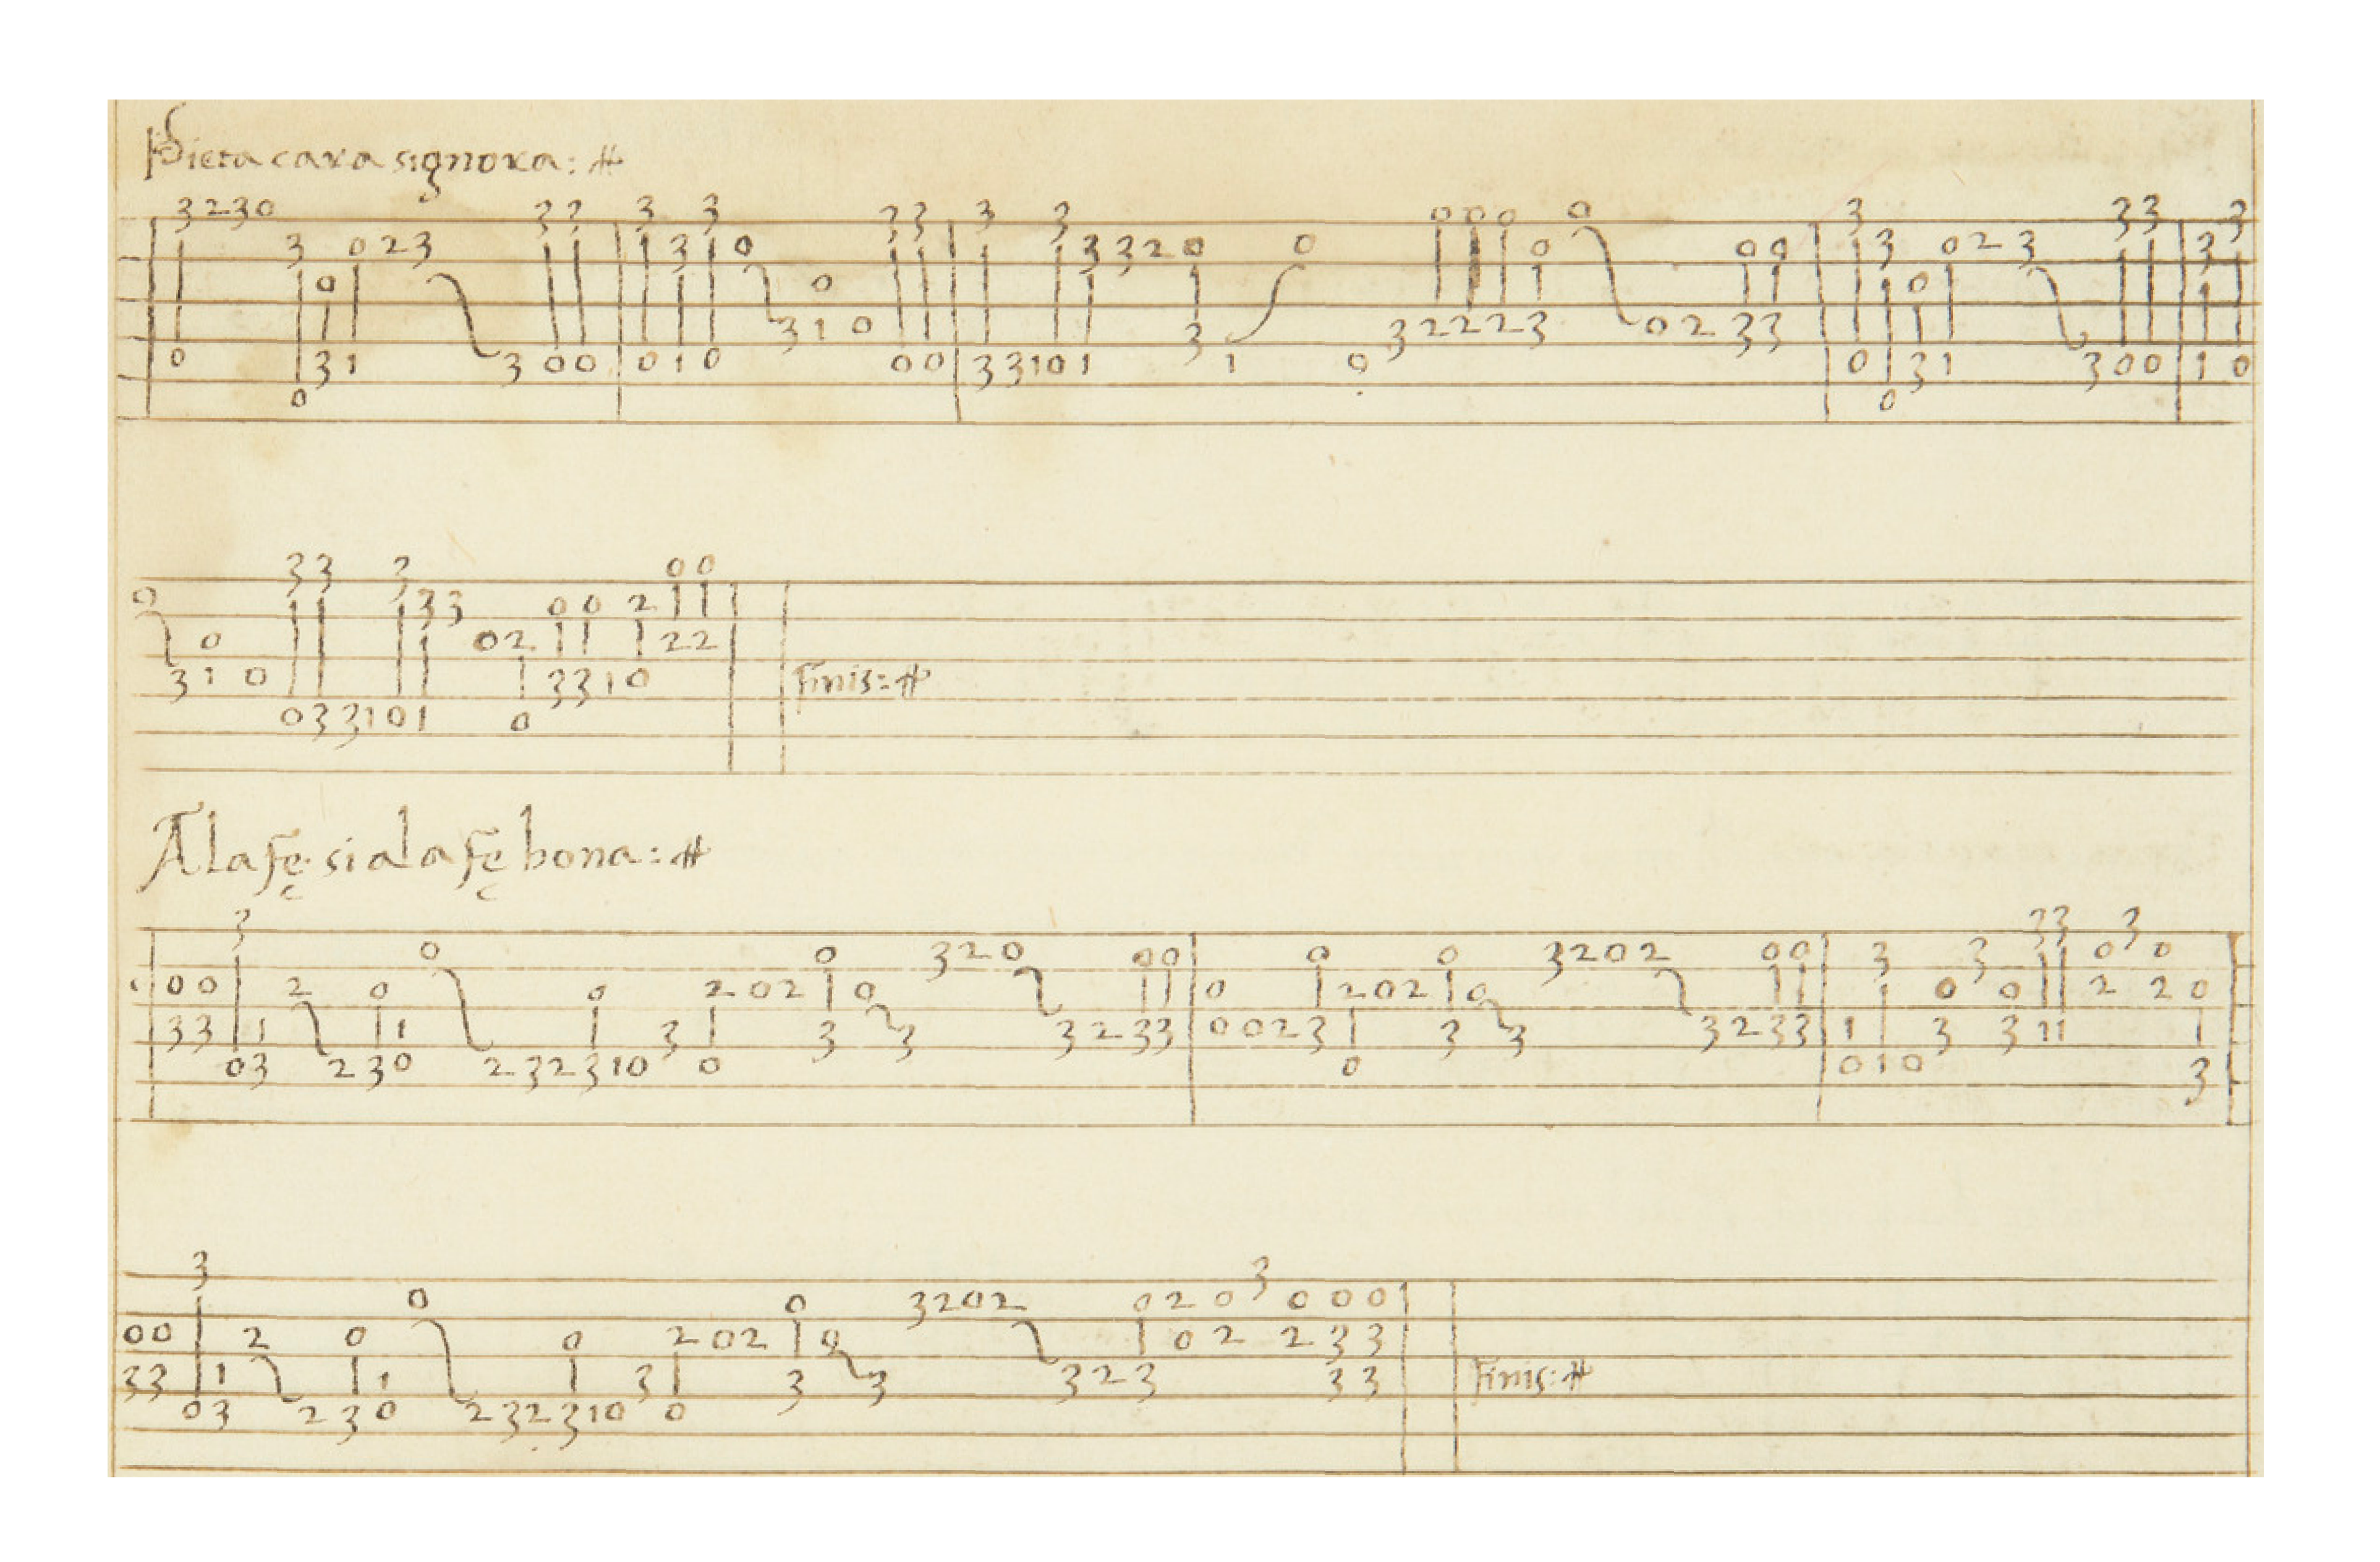 Pieta cara signora:
Finis:
A la fę si a la fę bona:
Finis: